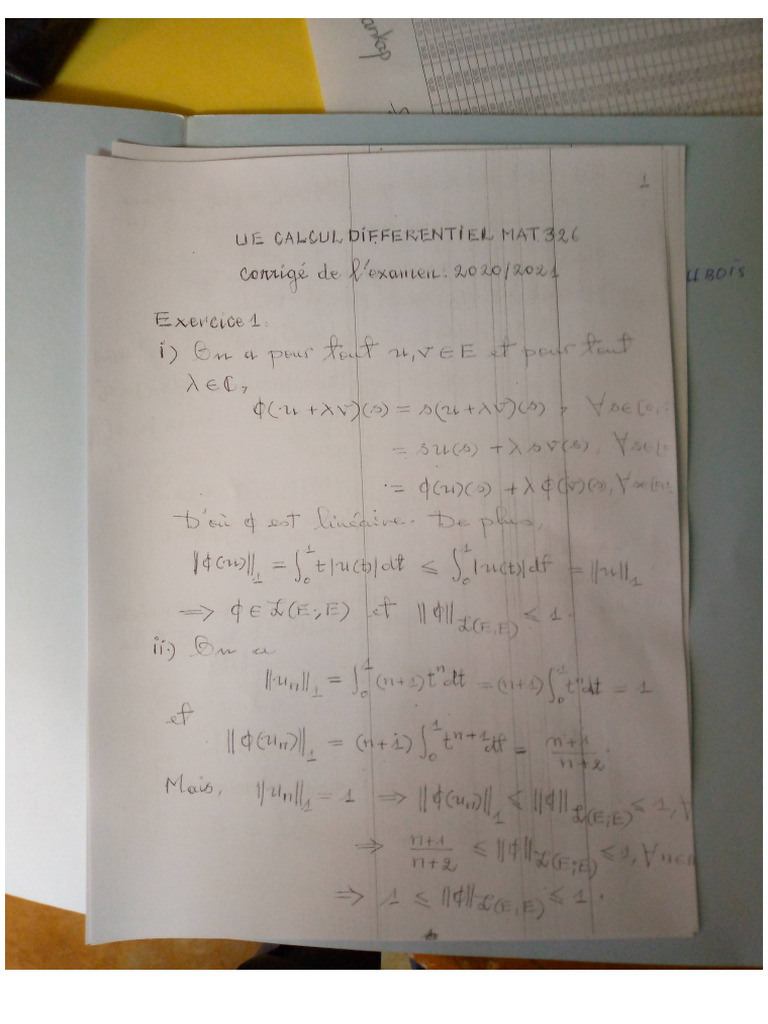 ankap
UBOIS
1
UE CALCUL DIFFERENTIEL MAT 326
Corrigé de l'examen: 2020/2021
Exercice 1:
i) On a pour tout u, v ∈ E et pour tout
λ ∈ ℂ,
ϕ(u + λv)(s) = s(u + λv)(s), ∀s∈[0,
= su(s) + λsv(s), ∀s∈[
= ϕ(u)(s) + λϕ(v)(s), ∀s∈[0,
D'où ϕ est linéaire. De plus,
‖ϕ(u)‖₁ = ∫₀¹ t|u(t)|dt ≤ ∫₀¹ |u(t)|dt = ‖u‖₁
⟹ ϕ ∈ ℒ(E;E) et ‖ϕ‖ℒ(E,E) ≤ 1.
ii) On a
‖uₙ‖₁ = ∫₀¹ (n+1)tⁿdt = (n+1)∫₀¹ tⁿdt = 1
et
‖ϕ(uₙ)‖₁ = (n+1)∫₀¹ tⁿ⁺¹dt = (n+1)/(n+2).
Mais, ‖uₙ‖₁ = 1 ⟹ ‖ϕ(uₙ)‖₁ ≤ ‖ϕ‖ℒ(E;E) ≤ 1, ∀
⟹ (n+1)/(n+2) ≤ ‖ϕ‖ℒ(E;E) ≤ 1, ∀n∈
⟹ 1 ≤ ‖ϕ‖ℒ(E,E) ≤ 1.